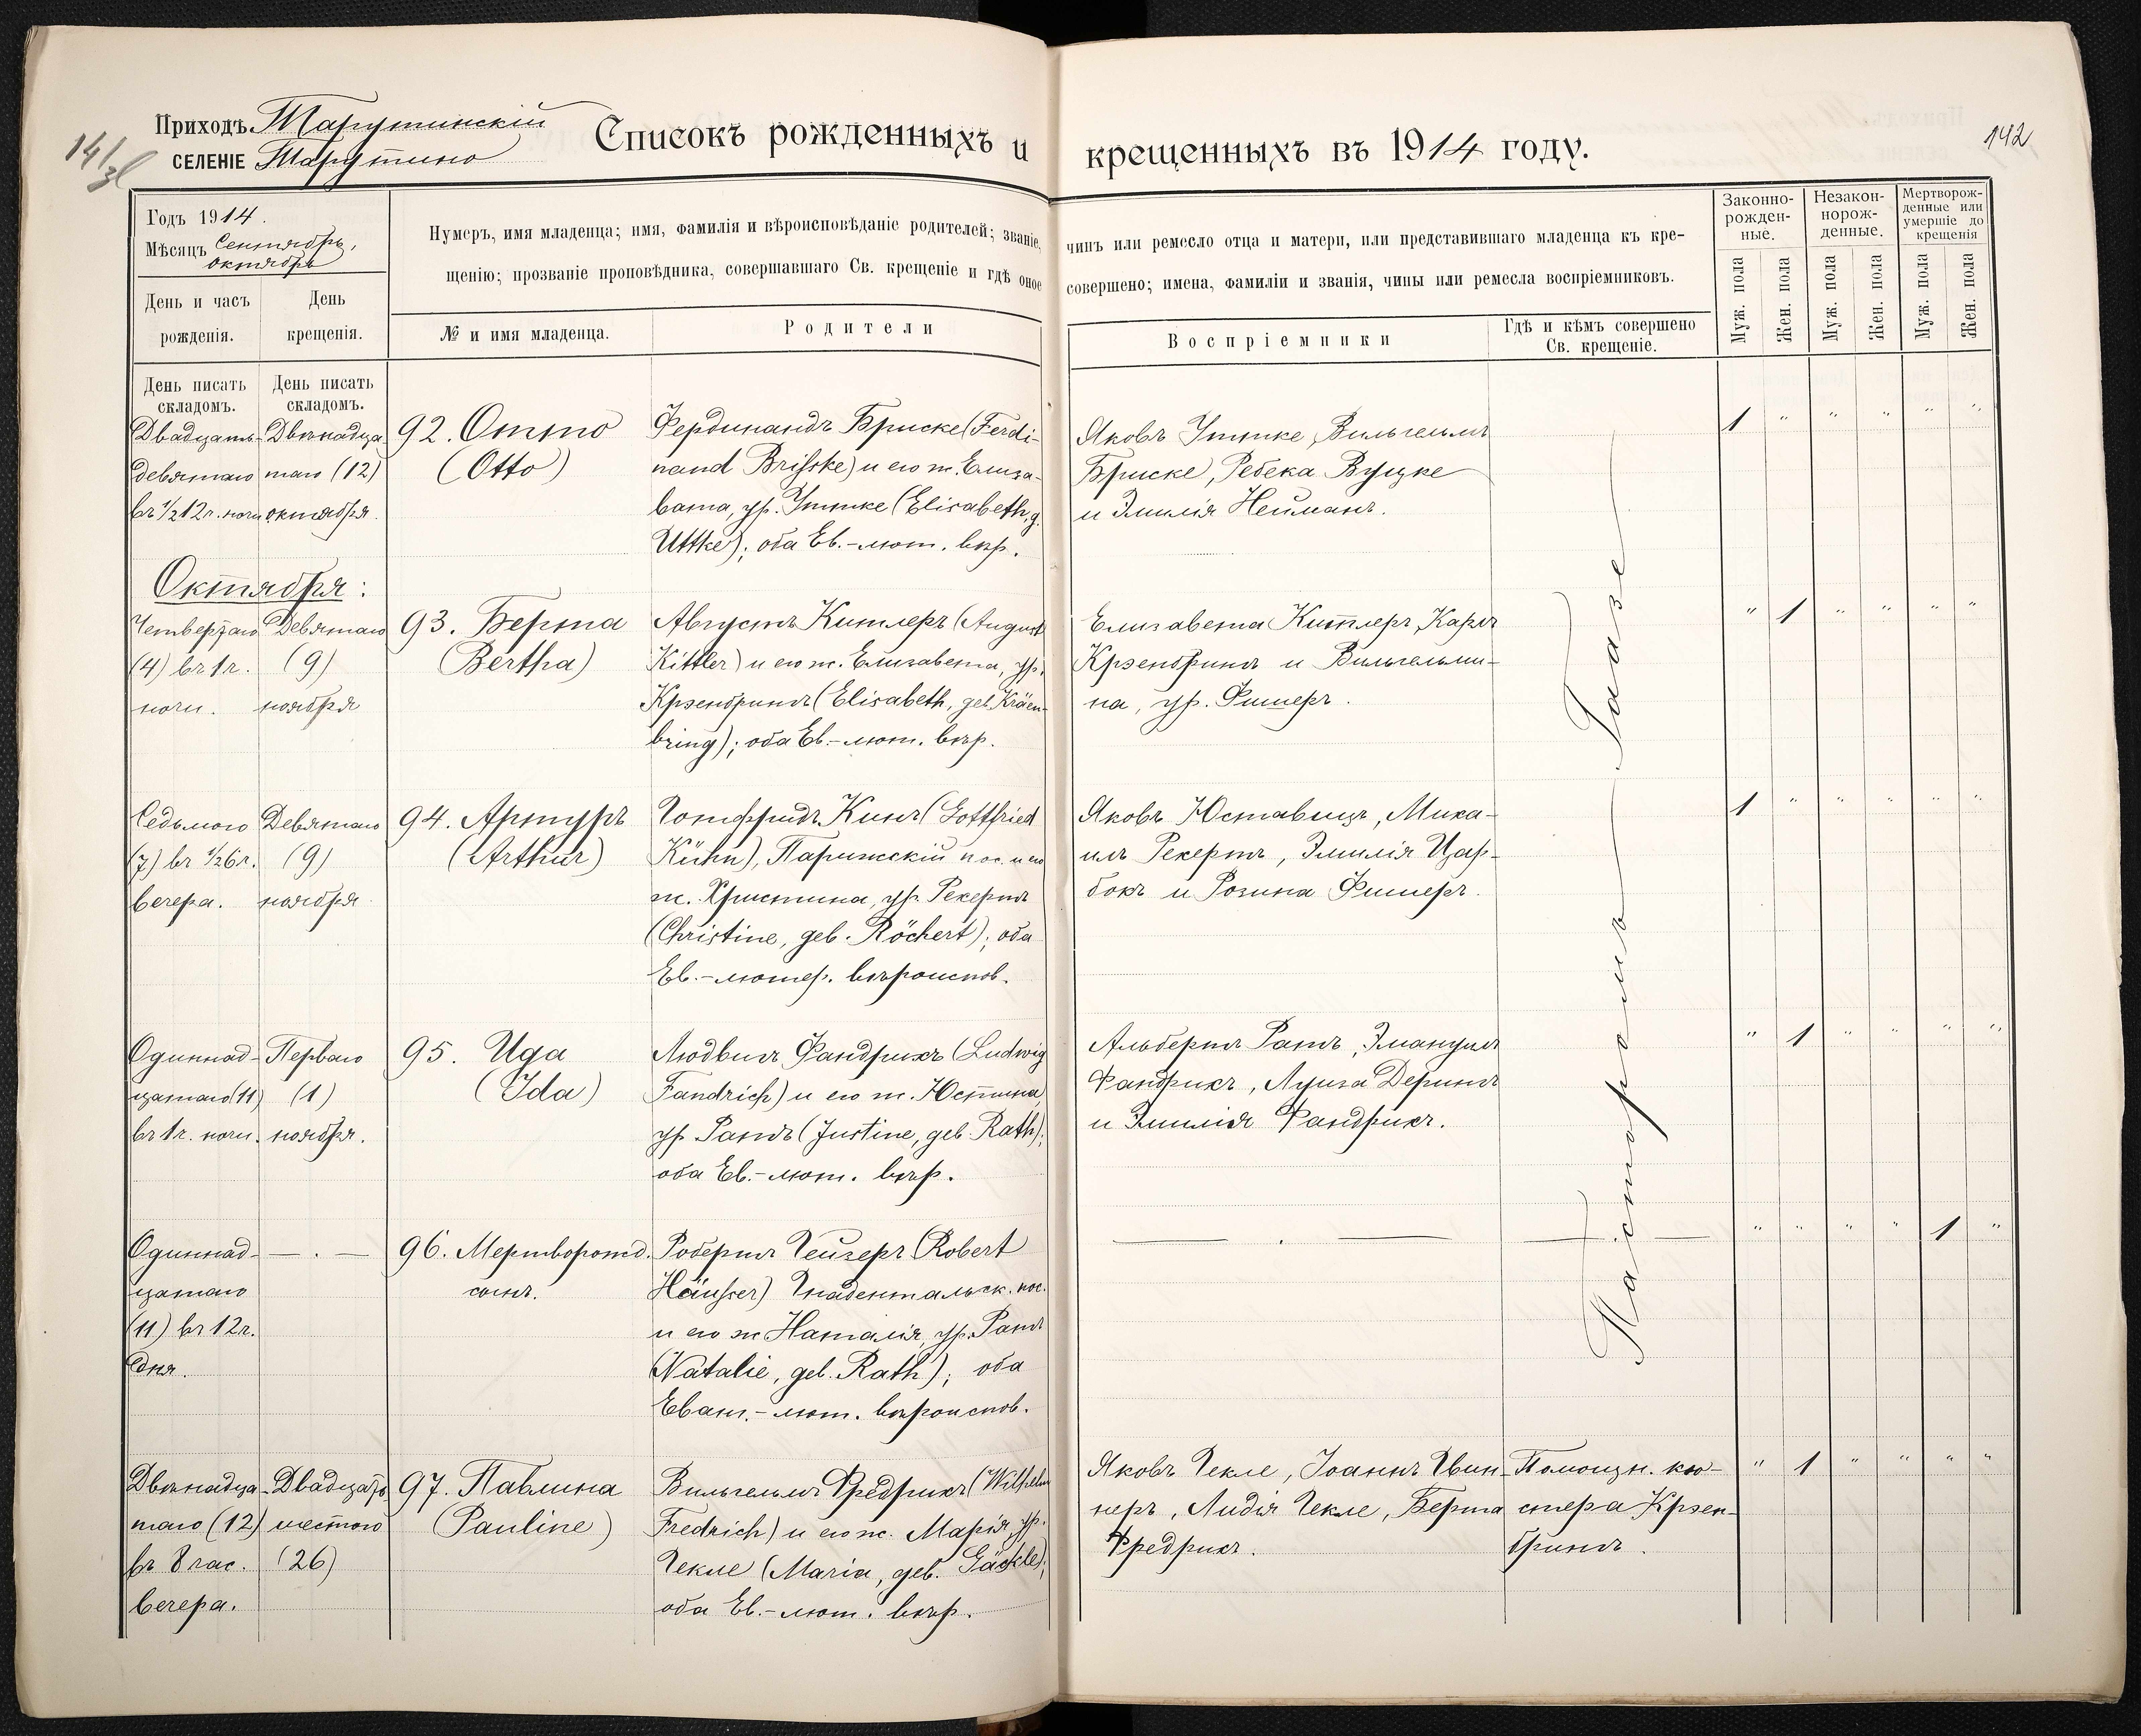 Приходъ Тарутинскій
селеніе Тарутино
Списокъ рожденныхъ и крещенныхъ въ 1914 году.
141
142
Годъ 1914.
Мѣсяцъ Сентябрь,
октябрь
День и часъ
рожденія.
День
крещенія.
Нумеръ, имя младенца; имя, фамилія и вѣроисповѣданіе родителей; званіе, чинъ или ремесло отца и матери, или представившаго младенца къ кре-
щенію; прозваніе проповѣдника, совершавшаго Св. крещеніе и гдѣ оное совершено; имена, фамиліи и званія, чины или ремесла воспріемниковъ.
№ и имя младенца.
Родители
Воспріемники
Гдѣ и кѣмъ совершено
Св. крещеніе.
Законно-
рожден-
ные.
Незакон-
норож-
денные.
Мертворож-
денные или
умершіе до
крещенія
Муж. пола
Жен. пола
Муж. пола
Жен. пола
Муж. пола
Жен. пола
День писать
складомъ.
День писать
складомъ.
Двадцать-
девятаго
въ ½12 г. ночи
Двѣнадца
таго (12)
октября.
92. Отто
(Otto)
Фердинандъ Бриске (Ferdi-
nand Brißke) и его ж. Елиза-
вета, ур. Уттке (Elisabeth, g.
Uttke); оба Ев.-лют. вѣр.
Яковъ Уттке, Вильгельмъ
Бриске, Ребека Вуцке
и Эмилія Нейманъ.
1 " " " " "
Октября:
Четвертаго
(4) въ 1 г.
ночи.
Девятаго
(9)
ноября
93. Берта
(Bertha)
Августъ Китлеръ (August
Kittler) и его ж. Елизавета, ур.
Крэенбрингъ (Elisabeth, geb. Kräen-
bring); оба Ев.-лют. вѣр.
Елизавета Китлеръ, Карлъ
Крэенбрингъ и Вильгельми-
на, ур. Фишеръ.
" 1 " " " "
Седьмого
(7) въ ½6 г.
вечера.
Девятаго
(9)
ноября
94. Артуръ
(Arthur)
Готфридъ Кинъ (Gottfried
Kühn), Парижскій пос. и его
ж. Христина, ур. Рекертъ
(Christine, geb. Röchert); оба
Ев.-лютер. вѣроиспов.
Яковъ Юставицъ, Миха-
илъ Рекертъ, Эмилія Цар-
бокъ и Розина Фишеръ.
1 " " " " "
Одиннад-
цатаго (11)
въ 1 г. ночи.
Перваго
(1)
ноября.
95. Ида
(Ida)
Людвигъ Фандрихъ (Ludwig
Fandrich) и его ж. Юстина,
ур. Ратъ (Justine, geb. Rath);
оба Ев.-лют. вѣр.
Альбертъ Ратъ, Эмануилъ
Фандрихъ, Луиза Дерингъ
и Эмилія Фандрихъ.
" 1 " " " "
Одиннад-
цатаго
(11) въ 12 г.
дня.
— . —
96. Мертворожд.
сынъ.
Робертъ Гейзеръ (Robert
Häußer) Гнадентальск. пос.
и его ж. Наталія, ур. Ратъ
(Natalie, geb. Rath); оба
Еванг.-лют. вѣроиспов.
— . —
" " " " 1 "
Пасторомъ Гаазе
Двѣнадца-
таго (12)
въ 8 час.
вечера.
Двадцать
шестого
(26)
97. Павлина
(Pauline)
Вильгельмъ Фредрихъ (Wilhelm
Fredrich) и его ж. Марія, ур.
Гекле (Maria, geb. Gäckle);
оба Ев.-лют. вѣр.
Яковъ Гекле, Іоаннъ Гвин-
неръ, Лидія Гекле, Берта
Фредрихъ.
Помощн. кю-
стера Крэен-
брингъ.
" 1 " " " "